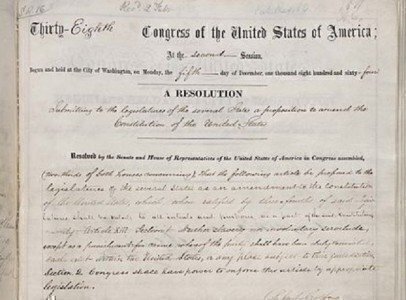 Thirty-Eighth Congress of the United States of America;
At the second Session,
Begun and held at the City of Washington, on Monday, the fifth day of December, one thousand eight hundred and sixty-four
A RESOLUTION
Submitting to the legislatures of the several States a proposition to amend the
Constitution of the United States.
Resolved by the Senate and House of Representatives of the United States of America in Congress assembled,
(two-thirds of both houses concurring), That the following article be proposed to the
legislatures of the several States as an amendment to the constitution
of the United States, which, when ratified by three-fourths of said
shall be valid, to all intents and purposes, as a part of the said constitution
namely: Article XIII. Section 1. Neither slavery nor involuntary servitude,
except as a punishment for crime whereof the party shall have been duly convicted,
shall exist within the United States, or any place subject to their jurisdiction.
Section 2. Congress shall have power to enforce this article by appropriate
legislation.